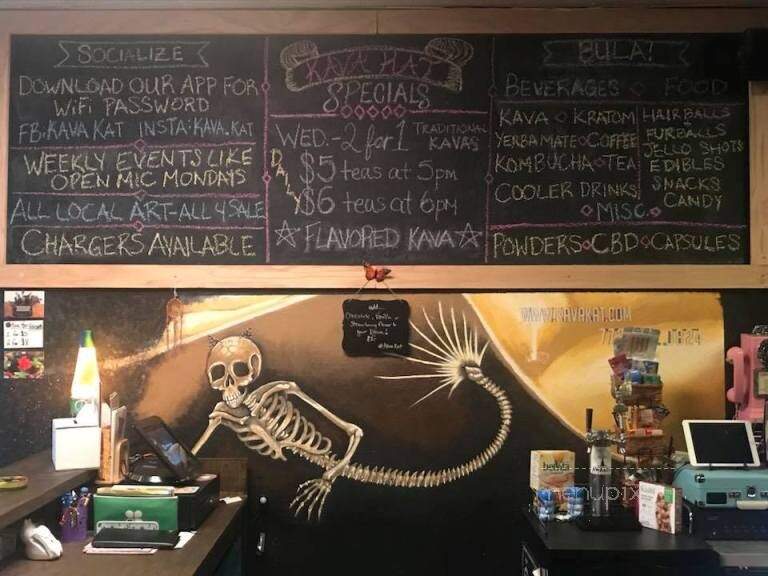 SOCIALIZE
DOWNLOAD OUR APP FOR
WiFi PASSWORD
FB:KAVA KAT INSTA:KAVA.KAT
WEEKLY EVENTS LIKE
OPEN MIC MONDAYS
ALL LOCAL ART-ALL 4 SALE
CHARGERS AVAILABLE
KAVA KAT
SPECIALS
WED.-2 for 1 TRADITIONAL
KAVAS
DAILY
$5 teas at 5pm
$6 teas at 6pm
FLAVORED KAVA
BULA!
BEVERAGES FOOD
KAVA KRATOM
YERBA MATE COFFEE
KOMBUCHA TEA
COOLER DRINKS
HAIRBALLS
FURBALLS
JELLO SHOTS
EDIBLES
SNACKS
CANDY
MISC.
POWDERS CBD CAPSULES
add...
Chocolate, Vanilla or
WWW.KAVAKAT.COM
menupix